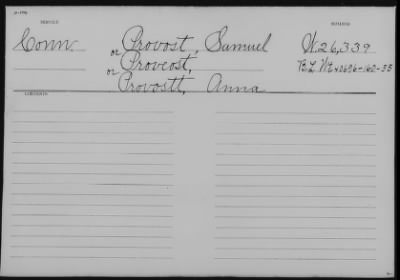 SERVICE NUMBER
Conn. Provost, Samuel W. 26,339
or Proveost, B.L. Wt. 40696-160-55
or Provostt, Anna
CONTENTS